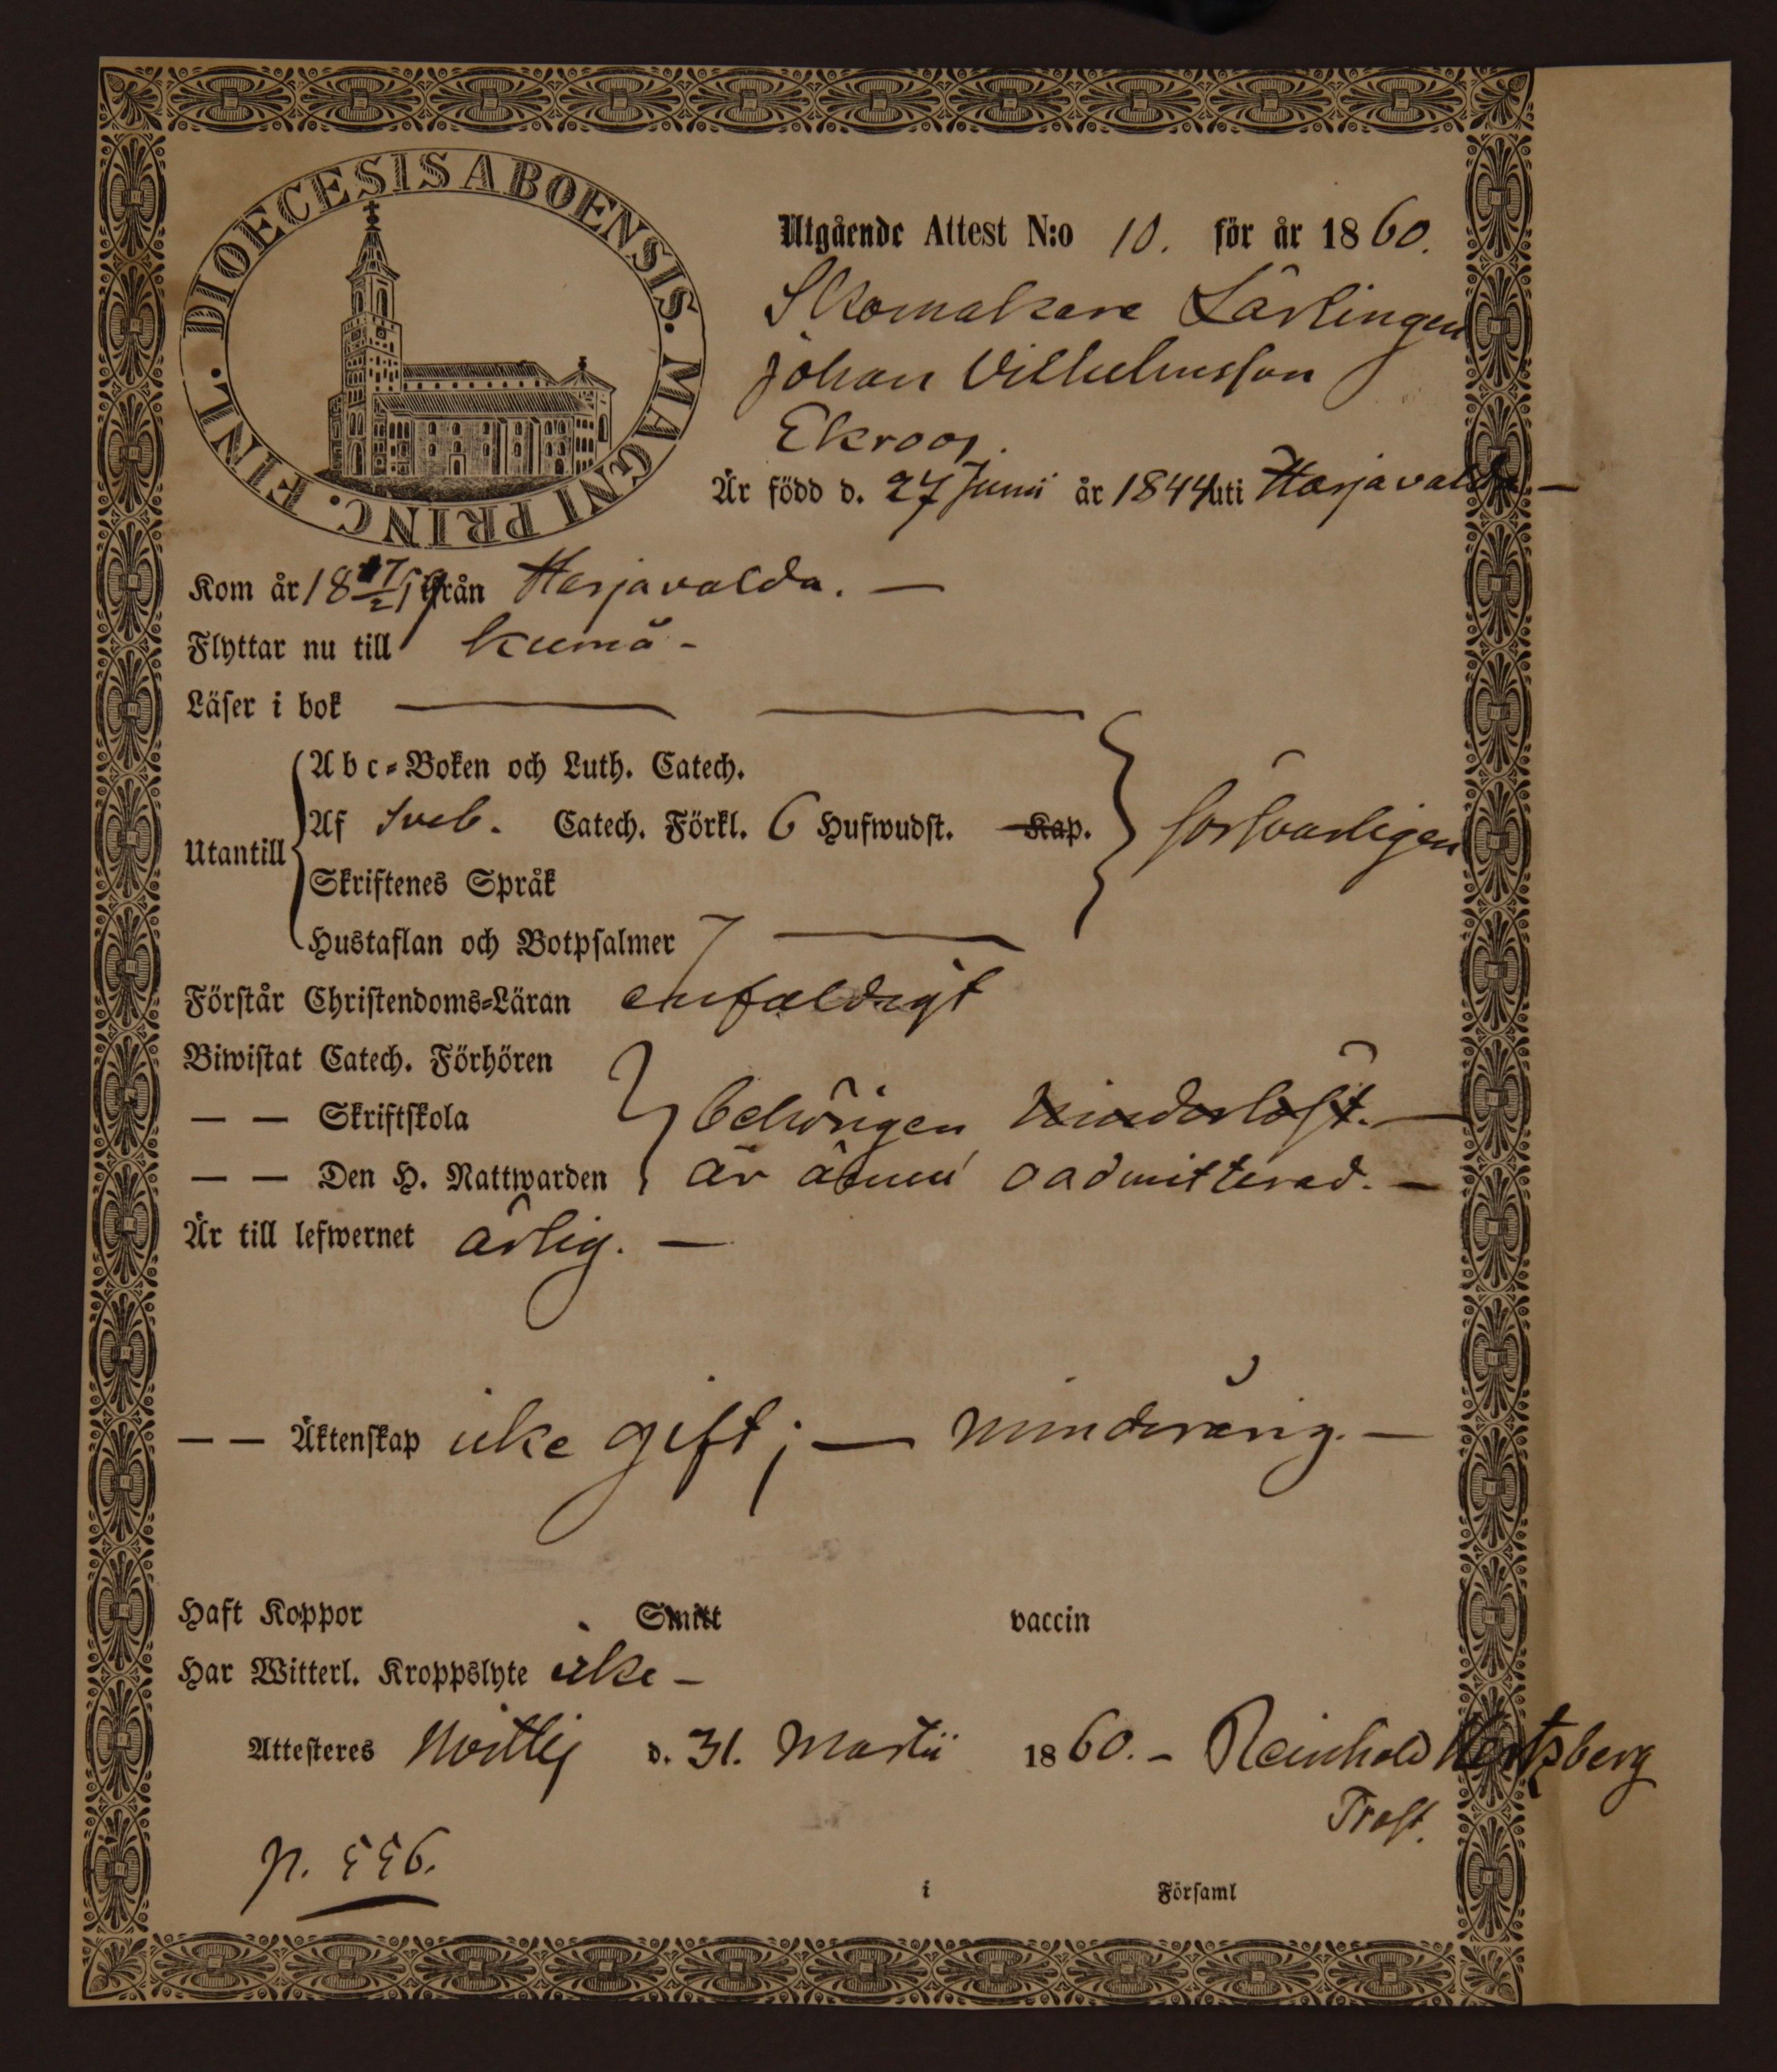 DIOECESIS ABOENSIS. MAGNI PRINC. FINL.
Utgående Attest N:o 10. för år 1860.
Skomakare Lärlingen
Johan Vilhelmsson
Ekroos.
Är född d. 27 Junii år 1844 uti Harjavalda —
Kom år 18 17/2 59 från Harjavalda. —
Flyttar nu till Kumå -
Läser i bok
Abc-Boken och Luth. Catech.
Utantill Af Sveb. Catech. Förkl. 6 Hufwudst. Kap. försvarligen
Skriftenes Språk
Hustaflan och Botpsalmer
Förstår Christendoms-Läran enfaldigt
Biwistat Catech. Förhören
— — Skriftskola behörigen
— — Den H. Nattwarden är ännu oadmitterad. —
Är till lefwernet ärlig. —
— — Äktenskap icke gift; — minderårig. —
Haft Koppor Smitt vaccin
Har Witterl. Kroppslyte icke —
Attesteres d. 31. Martii 1860. - Reinhold Hertzberg
Prost.
p. 556.
i Församl